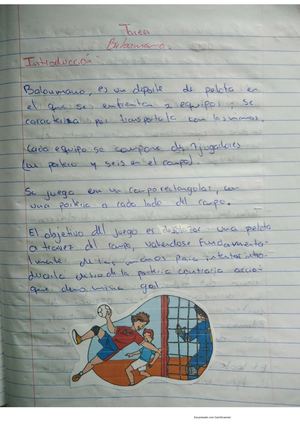 Tarea
Balonmano.
Introducción
Balonmano, es un deporte de pelota en
el que se enfrentan 2 equipos; se
caracteriza por transportarla con las manos.
Cada equipo se compone de 7 jugadores
(un portero y seis en el campo).
Se juega en un campo rectangular, con
una portería a cada lado del campo.
El objetivo del juego es desplazar una pelota
a travez del campo, valiendose fundamenta-
lmente de las manos para intentar intro-
ducirla dentro de la portería contraria accio-
que denomina gol
Escaneado con CamScanner